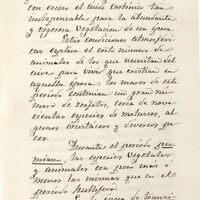 con exceso el ácido carbónico tan
indispensable para la abundante
y vigorosa vegetación de su época.
Estas condiciones atmosféricas
explica el corto número de
animales de los que necesitan del
aire para vivir que existían en
aquella época: los mares de este
período contenían un gran nú-
mero de zoófitos, cerca de nove-
cientas especies de moluscos, al-
gunos crustáceos y diversos pe-
ces.
Durante el período per-
miano, las especies vegetales
y animales eran poco más o
menos las mismas que en el
período hullífero.
época de transi-